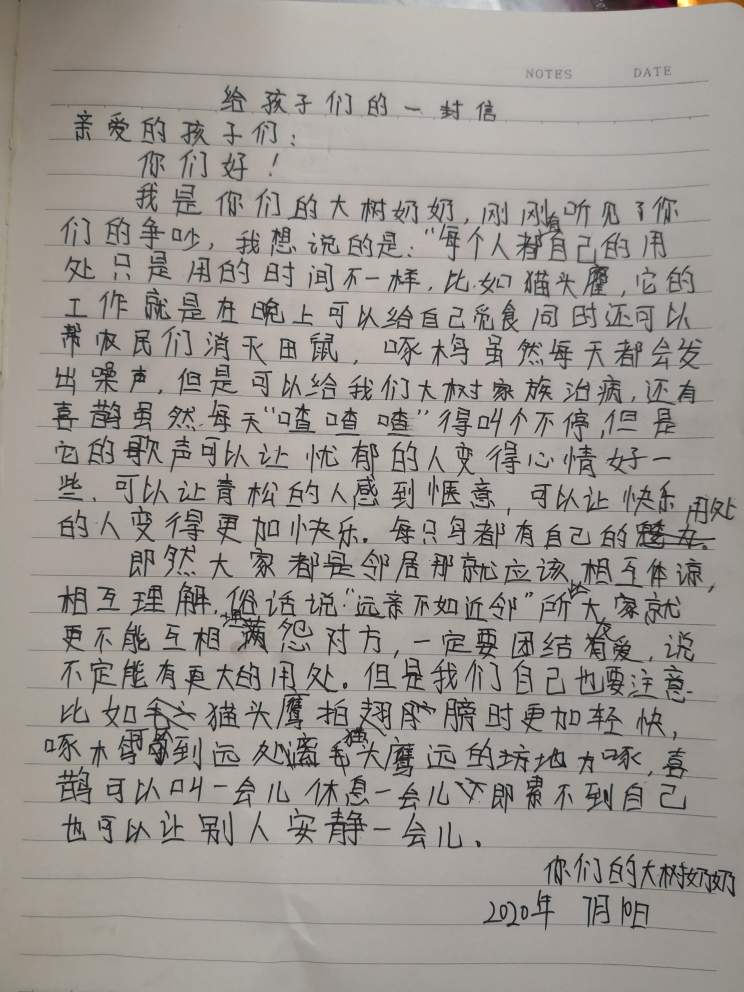 NOTES DATE
给孩子们的一封信
亲爱的孩子们：
你们好！
我是你们的大树奶奶，刚刚听见了你
们的争吵，我想说的是："每个人都有自己的用
处只是用的时间不一样，比如猫头鹰，它的
工作就是在晚上可以给自己觅食同时还可以
帮农民们消灭田鼠，啄木鸟虽然每天都会发
出噪声，但是可以给我们大树家族治病，还有
喜鹊虽然每天"喳喳喳"得叫个不停，但是
它的歌声可以让忧郁的人变得心情好一
些，可以让青松的人感到惬意，可以让快乐
的人变得更加快乐。每只鸟都有自己的用处
即然大家都是邻居那就应该相互体谅，
相互理解，俗话说："远亲不如近邻"所以大家就
更不能互相埋怨对方，一定要团结友爱，说
不定能有更大的用处。但是我们自己也要注意
比如猫头鹰拍翅膀时更加轻快，
啄木鸟可以到远处离猫头鹰远的地方啄，喜
鹊可以叫一会儿休息一会儿即累不到自己
也可以让别人安静一会儿。
你们的大树奶奶
2020年 7月10日